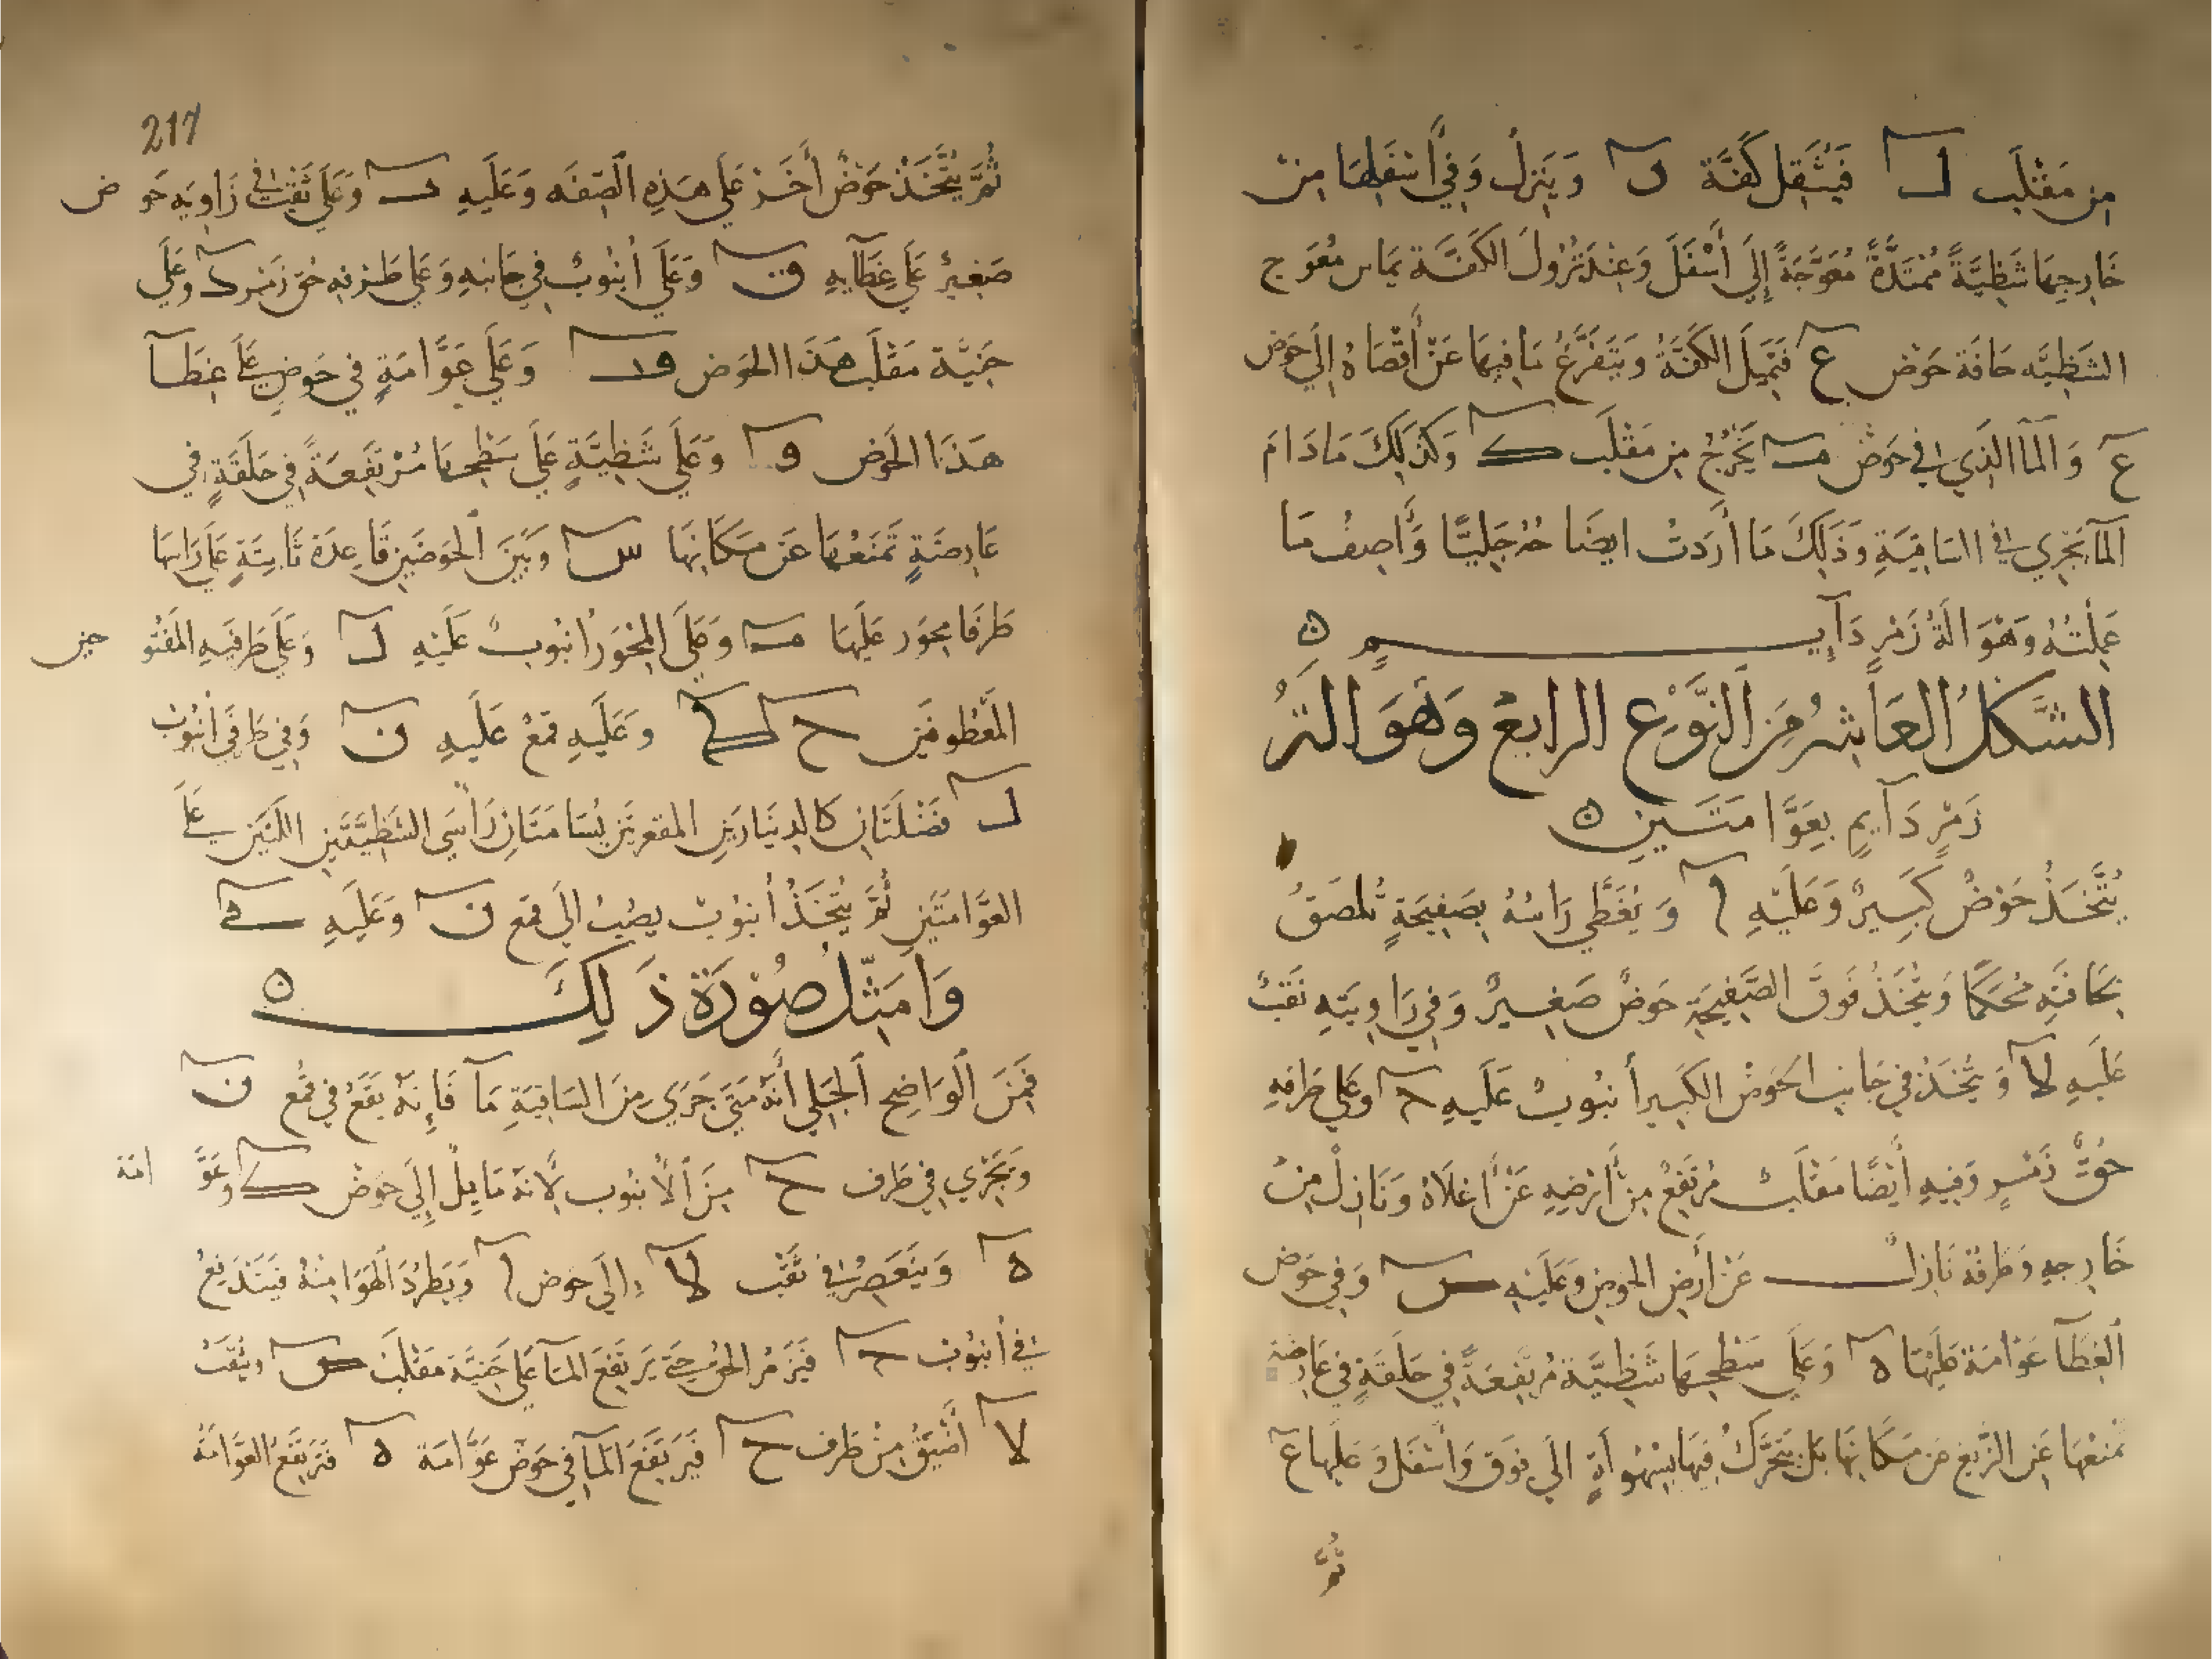 من مقلب ل فيثقل كفة ن وينزل وفي أسفلها من
خارجها شظية ممتدة معوجة إلى أسفل وعند نزول الكفة يماس معوج
الشظيه حافة حوض ع فتميل الكفة ويتفرغ ما فيها عن أقصاه إلى حوض
ع والمآ الذي في حوض م يخرج من مقلب ك وكذلك ما دام
المآ يجري في الساقية وذلك ما أردت ايضاحه جليا وأصف ما
عملته وهو الة زمر دآيم ه
الشكل العاشر من النوع الرابع وهو الة
زمر دآيم بعوامتين ه
يتخذ حوض كبير وعليه ا ويغطي راسه بصفيحة تلصق
بحافته محكما ويتخذ فوق الصفيحة حوض صغير وفي زاويته ثقب
عليه لا ويتخذ في جانب الحوض الكبير أنبوب عليه ح وعلى طرفه
حق زمر وفيه أيضا مقلب مرتفع من أرضه عن أعلاه ونازل من
خارجه وطرفه نازل عن أرض الحوض وعليه س وفي حوض
الغطآ عوامة عليها ه وعلى سطحها شظية مرتفعة في حلقة في عارضة
تمنعها عن الزيغ من مكانها بل يتحرك فيها بسهوآة الى فوق وأسفل وعليها ع
ثم
217
ثم يتخذ حوض أخذ على هذه الصفه وعليه د وعلى ثقب في زاويه حوض
صغير على غطآيه ق وعلى أنبوب في جانبه وعلى طرفه حق زمر ك وعلي
جنية مقلب هذا الحوض وا وعلى عوامة في حوض على غطآ
هذا الحوض و وعلى شظية على سطحها مرتفعة في حلقة في
عارضة تمنعها عن مكانها س وبين الحوضين قاعدة ثابتة على راسها
طرفا محور عليها م وعلى المحور أنبوب عليه ل وعلى طرفيه المفتوحين
المعطوفين ح ك وعليه قمع عليه ن وفي طرفي أنبوب
ل فضلتان كالدينارين المقعرين يسامتان رأسي الشظيتين اللتين على
العوامتين ثم يتخذ أنبوب يصب الى قمع ن وعليه ف
وامثل صورة ذلك ه
فمن الواضح الجلي أنه متى جرى من الساقية مآ فإنه يقع في قمع ن
ويجري في طرف ح من الأنبوب لأنه مايل إلى حوض ك وعوامة
ه وينعصر في ثقب لا إلى حوض ا ويطرد الهوا منه فيندفع
في أنبوب ح فيزمر الحق حتى يرتفع المآ على جنية مقلب س وثقب
لا أضيق من طرف ح فيرتفع المآ في حوض عوامة ه فترتفع العوامة